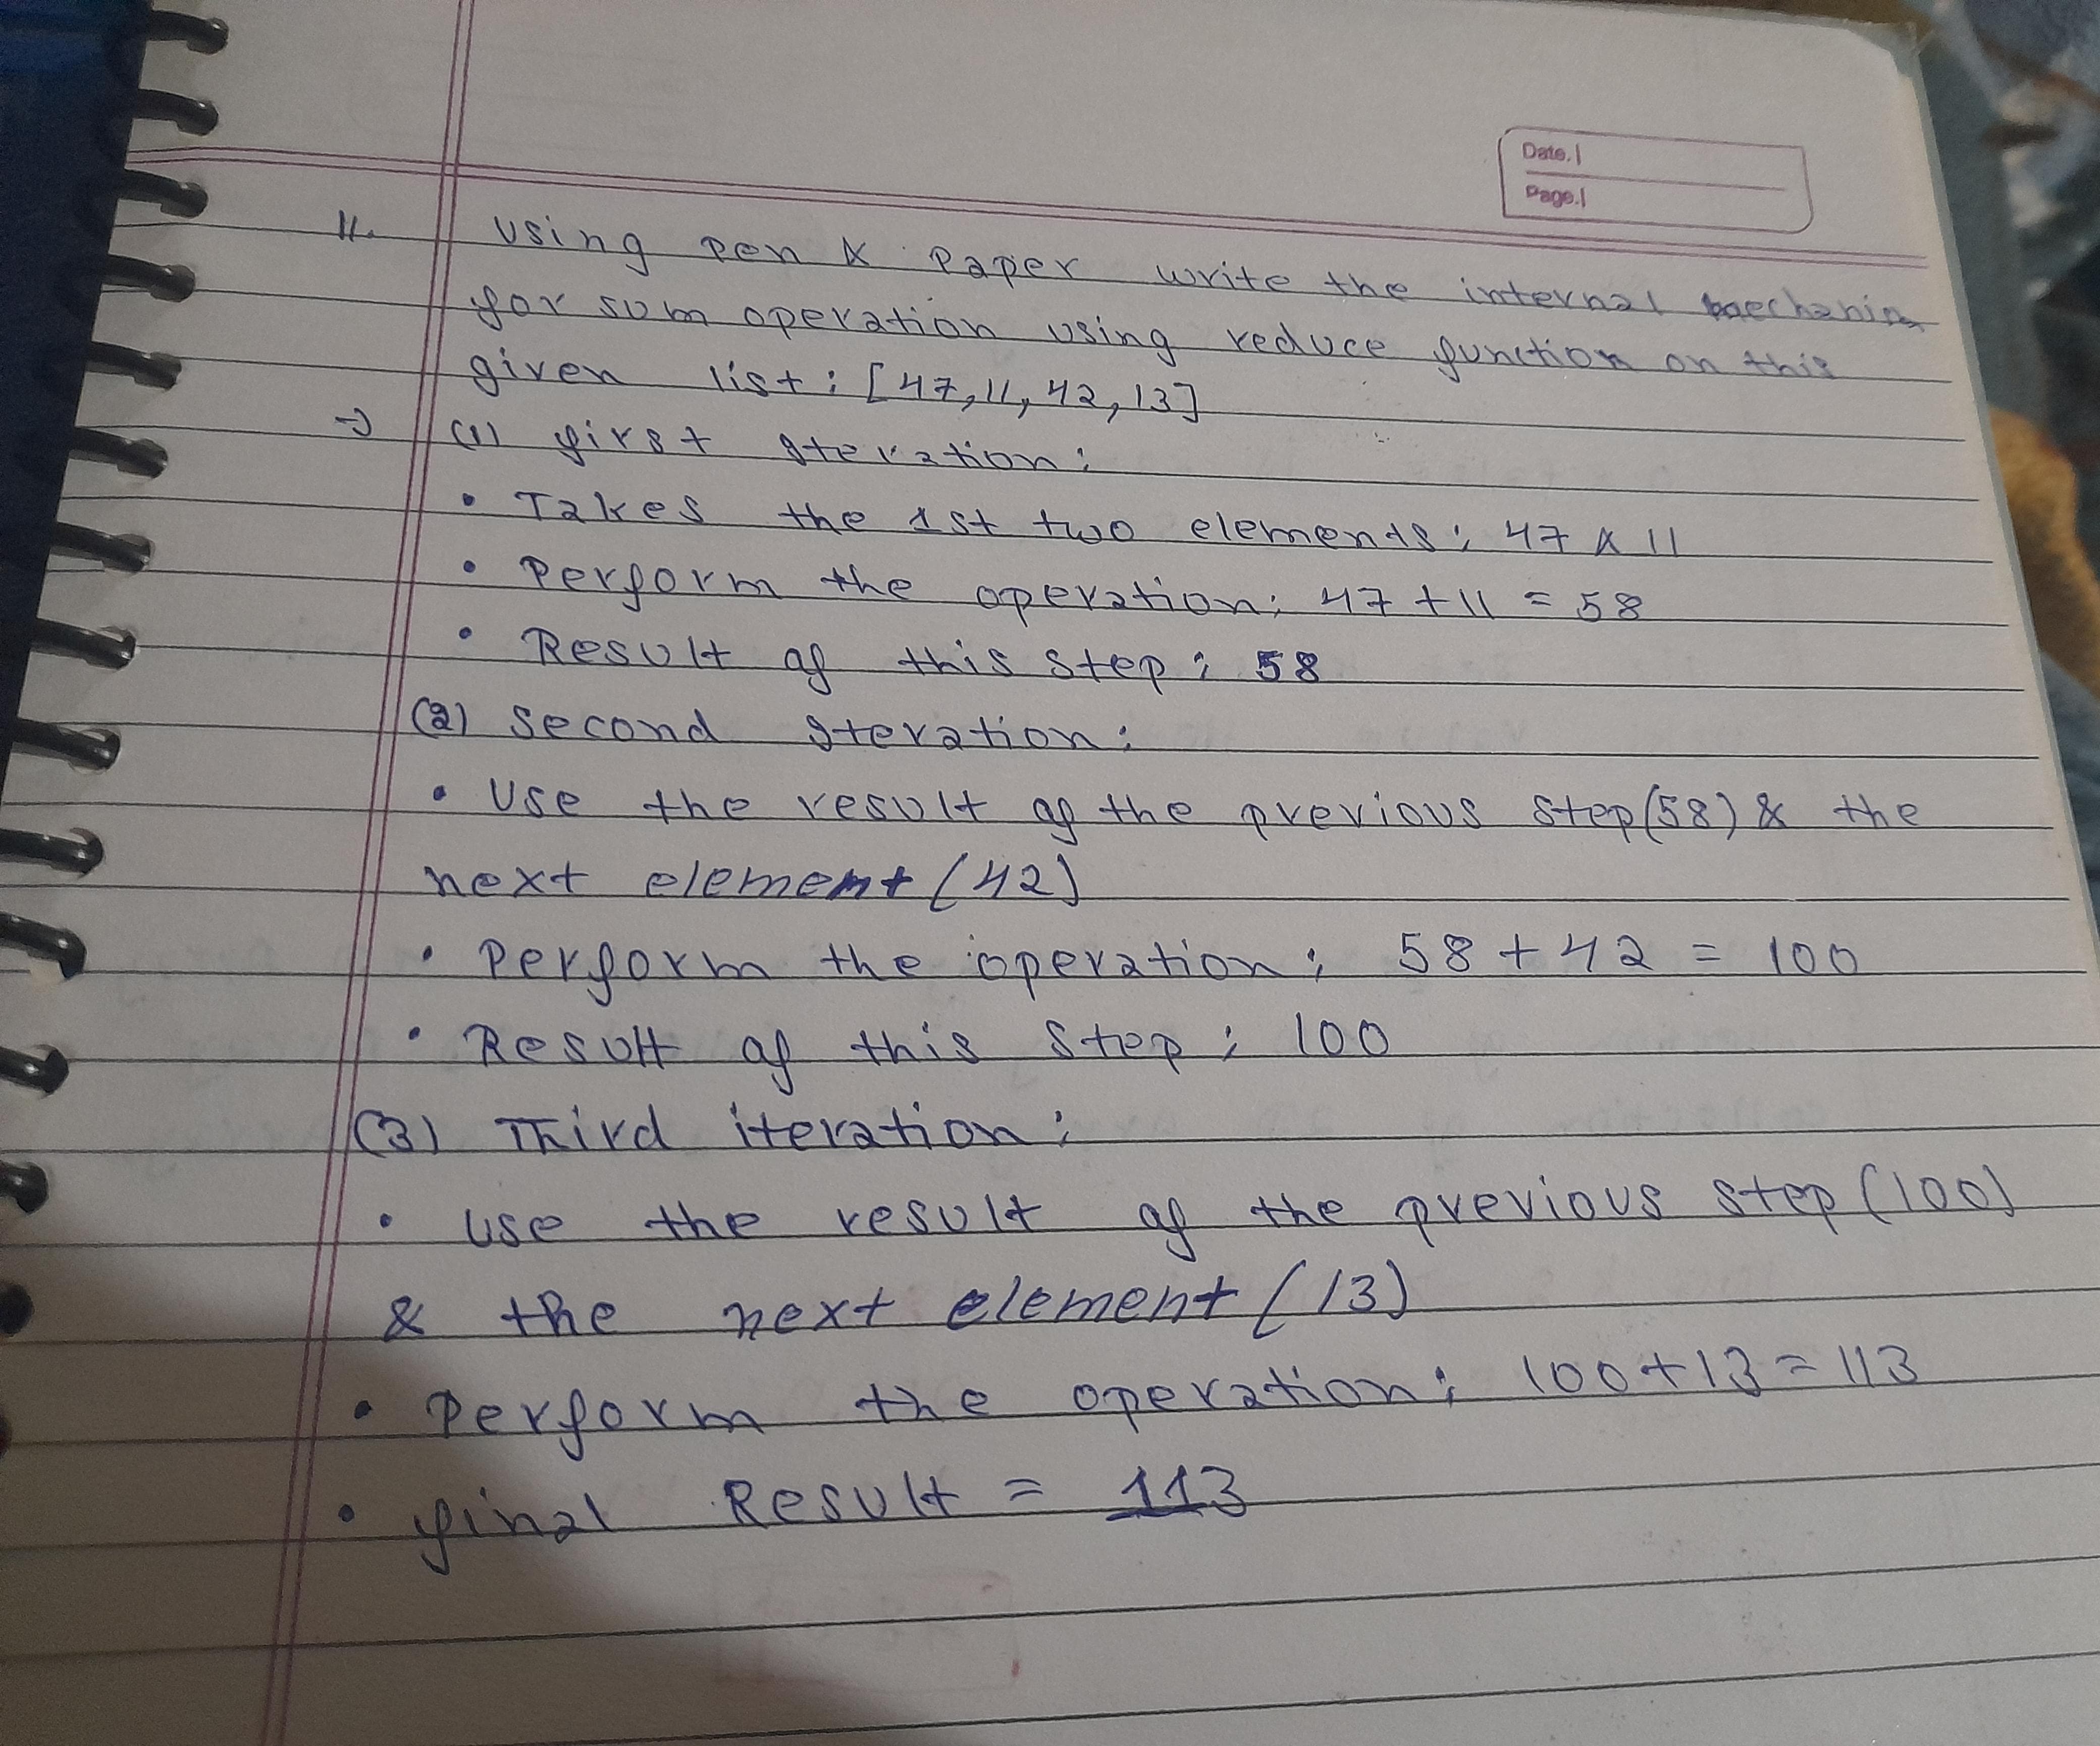 Date.
Page.
11. Using Pen & Paper write the internal mechanism
for sum operation using reduce function on this
given list: [47,11,42,13]
→ (1) first Iteration:
• Takes the 1st two elements: 47 & 11
• Perform the operation: 47 + 11 = 58
• Result of this step: 58
(2) Second Iteration:
• Use the result of the previous step(58) & the
next element (42)
• Perform the operation: 58 + 42 = 100
• Result of this step: 100
(3) Third iteration:
• Use the result of the previous step (100)
& the next element (13)
• Perform the operation: 100+13=113
• final Result = 113